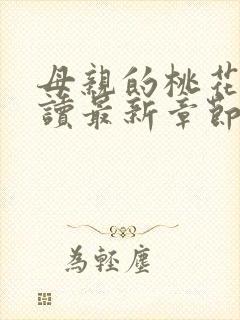 母親的桃花
讀最新章節
為輕塵